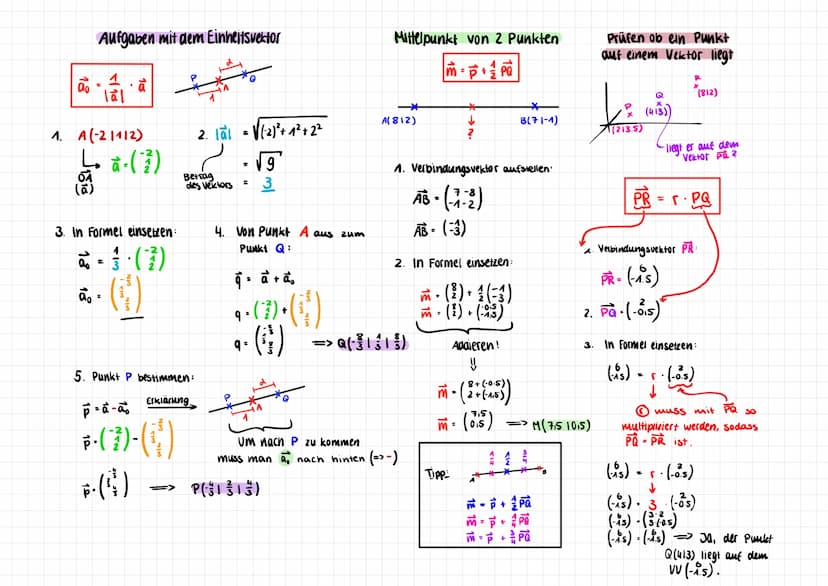 Aufgaben mit dem Einheitsvektor
a⃗₀ = 1/|a⃗| · a⃗
P
d
1
A
Q
1. A(-2|1|2)
OA (a⃗)
a⃗ = (-2 1 2)
2. |a⃗| = √(-2)²+1²+2²
= √9
= 3
Betrag des Vektors
3. In Formel einsetzen:
a⃗₀ = 1/3 · (-2 1 2)
a⃗₀ = (-2/3 1/3 2/3)
4. Von Punkt A aus zum
Punkt Q:
q⃗ = a⃗ + a⃗₀
q = (-2 1 2) + (-2/3 1/3 2/3)
5. Punkt P bestimmen:
p⃗ = a⃗ - a⃗₀
Erklärung
P
d
1
A
Q
Um nach P zu kommen
muss man a⃗₀ nach hinten (=> -)
=> P(-4/3|2/3|4/3)
Mittelpunkt von 2 Punkten
m⃗ = p⃗ + 1/2 PQ
A(8|2)
?
B(7|-1)
1. Verbindungsvektor aufstellen:
AB = (7-8 -1-2)
AB = (-1 -3)
2. In Formel einsetzen:
m⃗ = (8 2) + 1/2 (-1 -3)
m⃗ = (8 2) + (-0.5 -1.5)
Addieren!
m⃗ = (8+(-0.5) 2+(-1.5))
m⃗ = (7,5 0,5) => M(7,5|0,5)
Tipp:
1/4 1/2 3/4
m⃗ = p⃗ + 1/2 PQ
m⃗ = p⃗ + 1/4 PQ
m⃗ = p⃗ + 3/4 PQ
Prüfen ob ein Punkt
auf einem Vektor liegt
R
(8|2)
Q
(4|3)
P
(2|3.5)
liegt er auf dem
Vektor PR?
PR = r · PQ
1. Verbindungsvektor PR:
PR = (6 -1.5)
2. PQ = (2 -0,5)
3. In Formel einsetzen:
(6 -1.5) = r · (2 -0.5)
r muss mit PQ so
multipliziert werden, sodass
PQ = PR ist.
(6 -1.5) = r · (2 -0.5)
(6 -1.5) = 3 · (2 -0.5)
(6 -1.5) = (3·2 3·(-0.5))
(6 -1.5) = (6 -1.5) => Ja, der Punkt
Q(4|3) liegt auf dem
VV (6 -1.5).